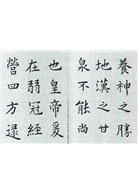 養神之勝
地漢之甘
泉不能尚
也皇帝爰
在弱冠經
營四方逮